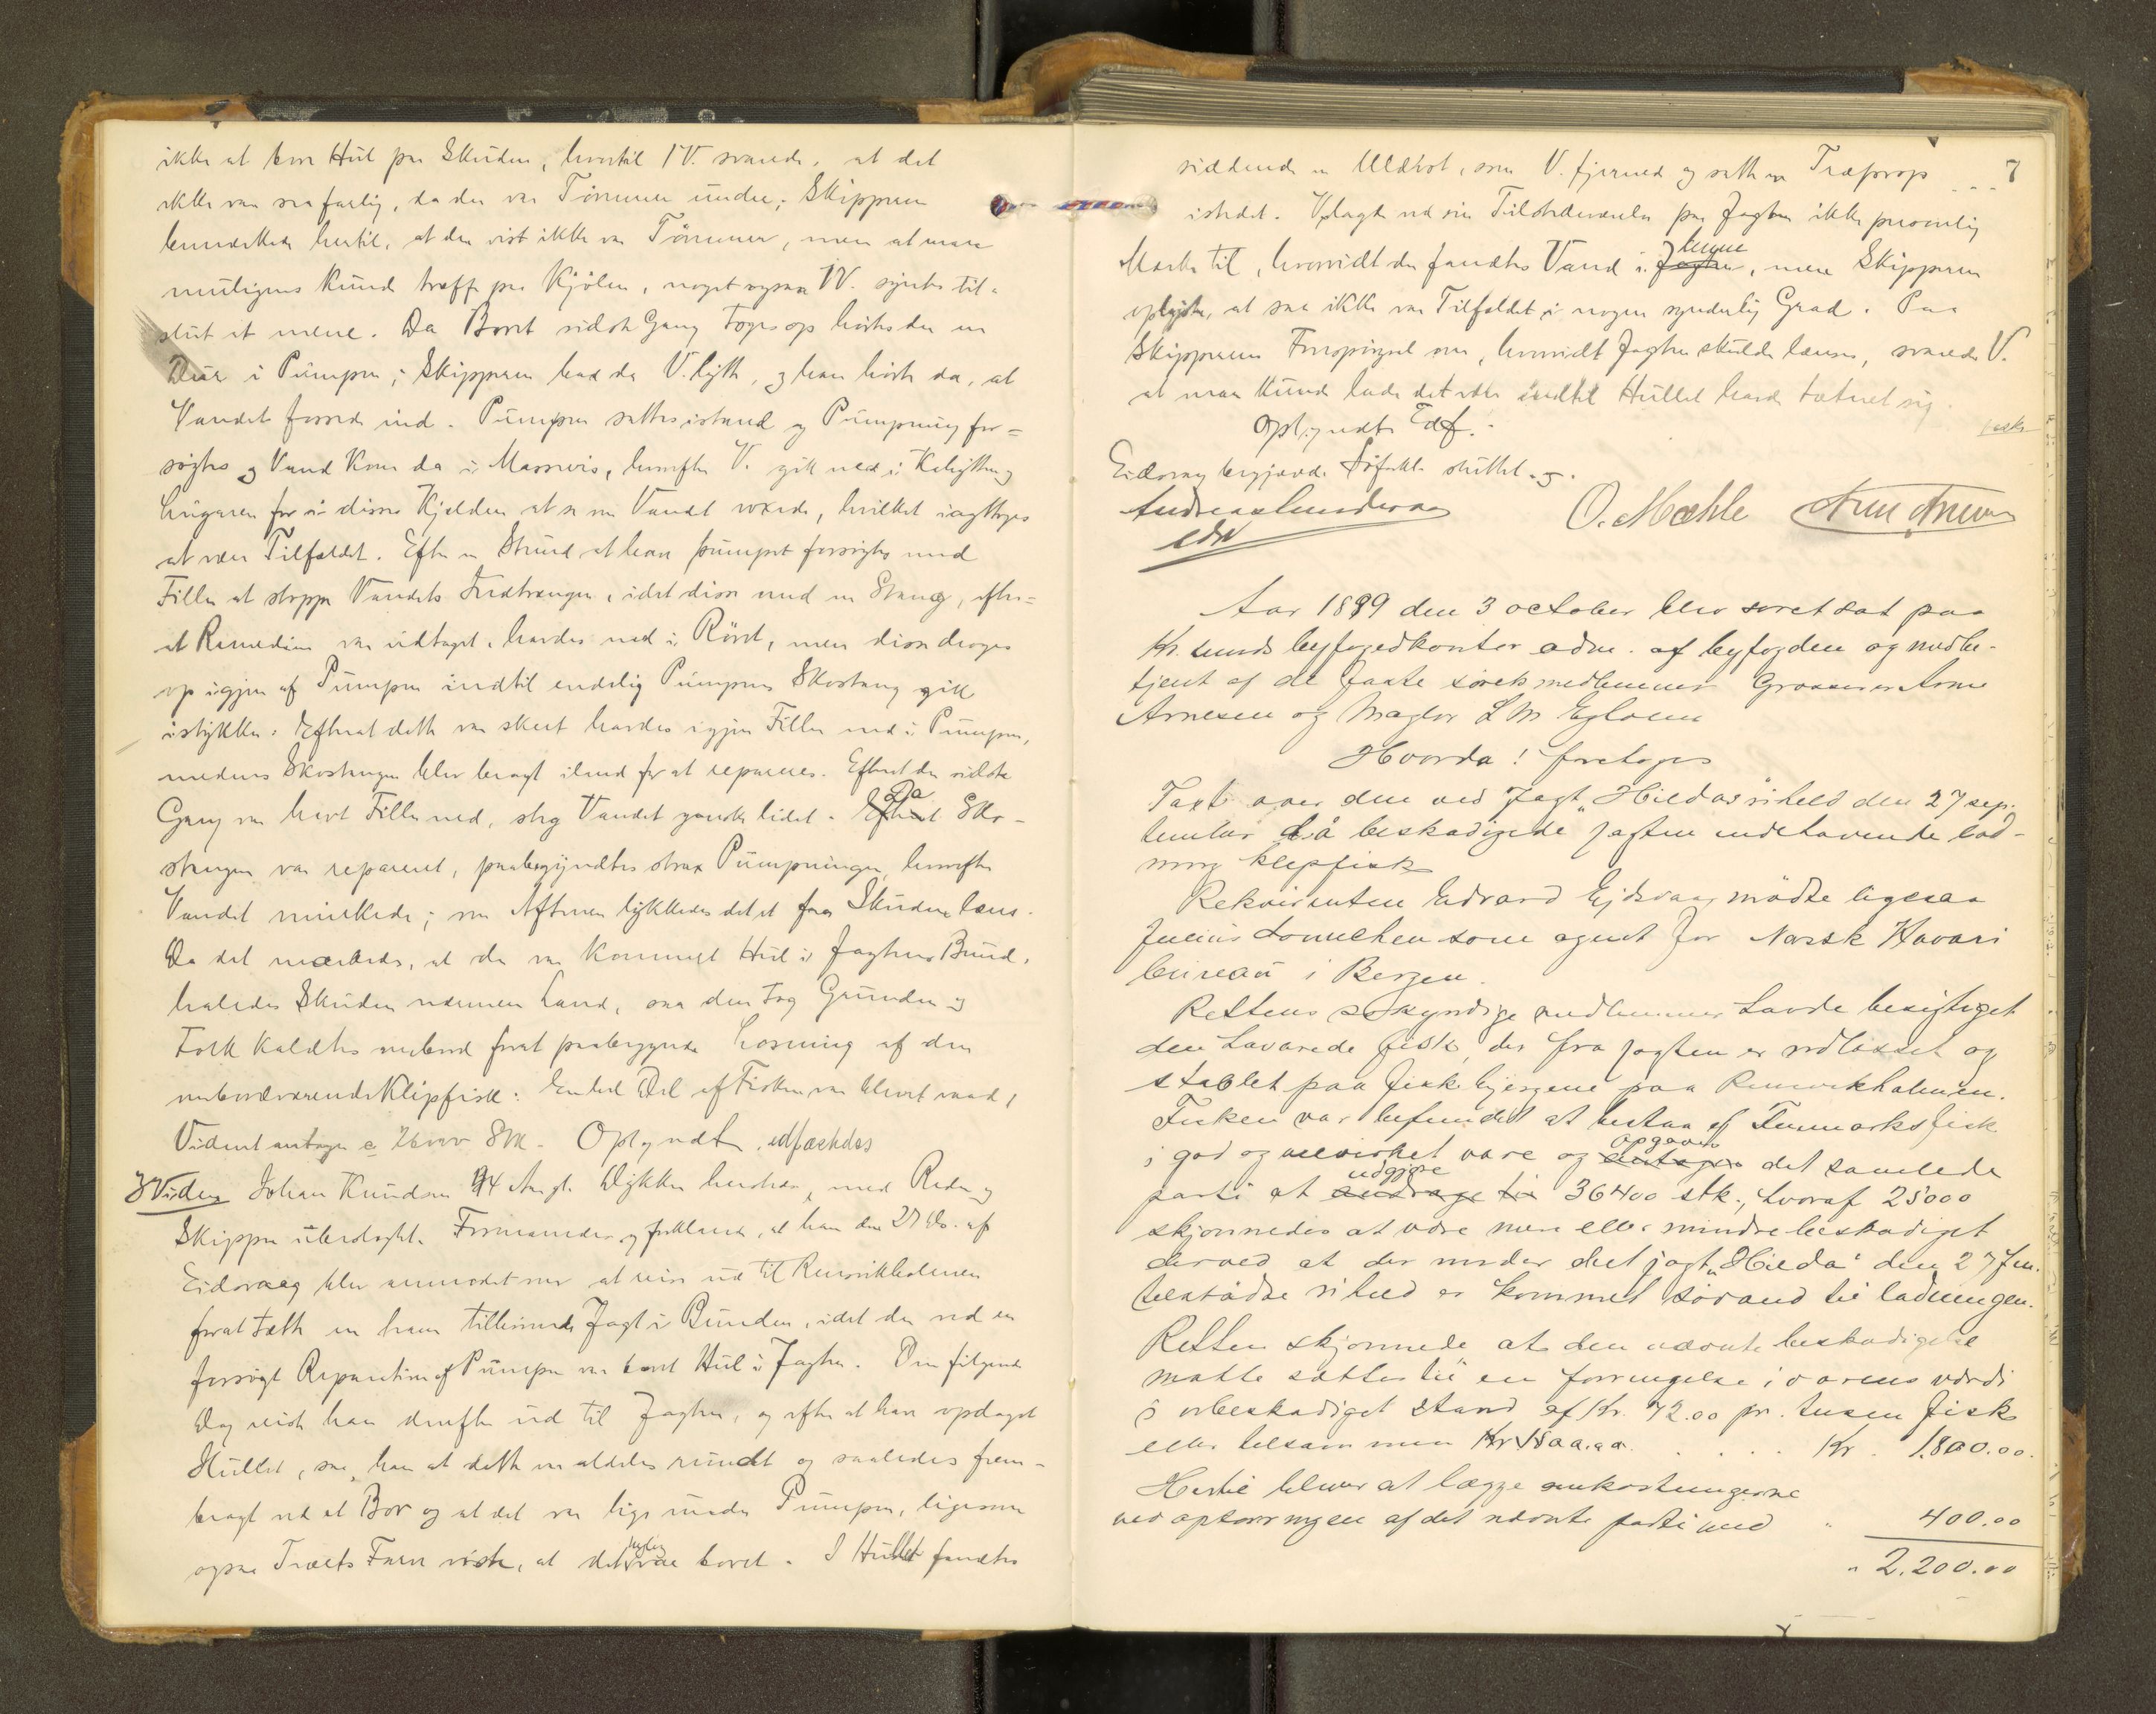 ikke at bore Hul paa Skuden, hvortil 1 V. svarede, at det
ikke var saa farlig, da der var Tømmer under; Skipperen
bemærkede hertil, at der vist ikke var Tømmer, men at man
muligens kunde træffe paa Kjølen, noget ogsaa 1 V. syntes til-
slut at mene. Da Boret sidste Gang toges op hørtes der en
Dur i Pumpen; Skipperen bad da V. lytte, og han hørte da, at
Vandet fossede ind. Pumpen sattes istand og Pumpning for-
søgtes og Vand kom da i Massevis, hvorefter V. gik ned i Kahytten og
Lugaren for i disse Kjeldere at se om Vandet voxede, hvilket iagttoges
at være Tilfældet. Efter en Stund at have pumpet forsøgtes med
Filler at stoppe Vandets Indtrængen, idet disse med en Stang, efter-
at Remedien var udtaget, havdes ned i Røret, men disse droges
op igjen af Pumpen indtil endelig Pumpens Skostang gik
istykker. Efterat dette var skeet havdes igjen Filler ned i Pumpen,
medens Skostangen blev bragt iland for at repareres. Efterat der sidste
Gang var havt Filler ned, steg Vandet ganske lidet. Efterat Da Sko-
stangen var repareret, paabegyndtes strax Pumpningen, hvorefter
Vandet minkede; om Aftenen lykkedes det at faa Skuden læns.
Da det mærkedes, at der var kommet Hul i Jagtens Bund,
haledes Skuden nærmere Land, saa den tog Grunden og
Folk kaldtes ombord forat paabegynde Losning af den
ombordværende Klipfisk. En hel Del af Fisken var blevet vaad,
Vidnet antager c 26000 Stk. Oplyndt, edfæstedes
3 Vidne Johan Knudsen 44 Aar gl. Dykker herstedes, med Reder og
Skipper ubeslægtet. Formanedes og forklarede, at han den 27 ds. af
Eidsvaag blev anmodet om at reise ud til Rensvikholmen
forat tætte en ham tilhørende Jagt i Bunden, idet der ved en
forsøgt Reparation af Pumpen var boret Hul i Jagten. Den følgende
Dag reiste han derefter ud til Jagten, og efter at have opdaget
Hullet, saa han at dette var aldeles rundt og saaledes frem-
bragt ved et Bor og at det var lige under Pumpen, ligesom
ogsaa Træets Farve viste, at det nylig var boret. I Hullet fandtes
7
siddende en Uldtot, som V. fjernede og satte en Træprop
istedet. V. lagde ved sin Tilstedeværelse paa Jagten ikke personlig
Mærke til, hvorvidt der fandtes Vand i Jagten denne, men Skipperen
oplyste, at saa ikke var Tilfældet i nogen synderlig Grad. Paa
Skipperens Forespørgsel om, hvorvidt Jagten skulde lænses, svarede V.
at man kunde lade det være indtil Hullet havde tætnet sig.
Oplyndt Edf.
Eidsvaag begjærede Søforkl. sluttet.
Andreas Gundersen
edsv
O. Mæhle Arne Arnesen
Aar 1899 den 3 october blev søret sat paa
Kr.sunds byfogedkontor adm. af byfogden og medbe-
tjent af de faste søretsmedlemmer Grosserer Arne
Arnesen og Mægler L M
Hvorda! foretoges
Taxt over den ved Jagt „Hildas" uheld den 27 sep-
tember då beskadigede jagten indehavende lad-
ning klepfisk
Rekvirenten Edvard Ejdsvaag mødte ligesaa
Julius som agent for Norsk Havari
bureau i Bergen.
Rettens søkyndige medlemmer havde besigtiget
den havarede fisk, der fra jagten er udlosset og
stablet paa fiskebjergene paa Rensvikholmen.
Fisken var befundet at bestaa af Finmarksfisk
i god og velvirket vare og antages opgaves det samlede
parti at andrage til udgjøre 36400 stk., hvoraf 25000
skjønnedes at være mere eller mindre beskadiget
derved at der under det jagt „Hilda" den 27 f.m.
tilstødte uheld er kommet søvand til ladningen.
Retten skjønnede at den nævnte beskadigelse
maatte sættes til en forringelse i varens værdi
i ubeskadiget stand af Kr. 72.00 pr. tusen fisk
eller tilsammen Kr 1800.00. . . . . Kr. 1.800.00.
Hertil bliver at lægge omkostningerne
ved optørringen af det nævnte parti med " 400.00
" 2.200.00